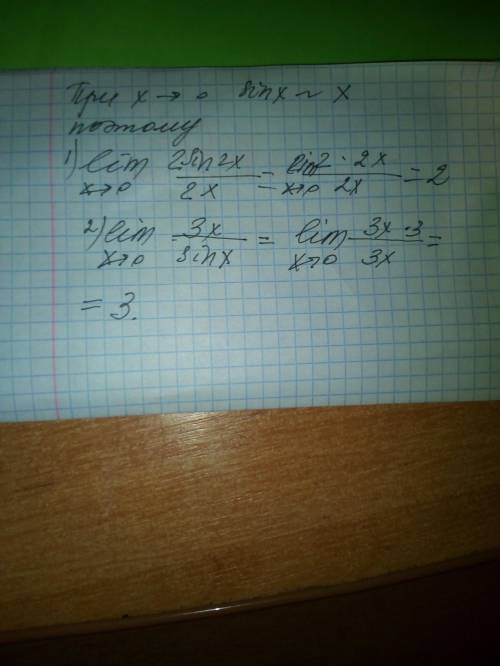 При x → 0 sinx ~ x
поэтому
1) lim x→0 2sin2x / 2x = lim x→0 2·2x / 2x = 2
2) lim x→0 3x / sinx = lim x→0 3x·3 / 3x =
= 3.